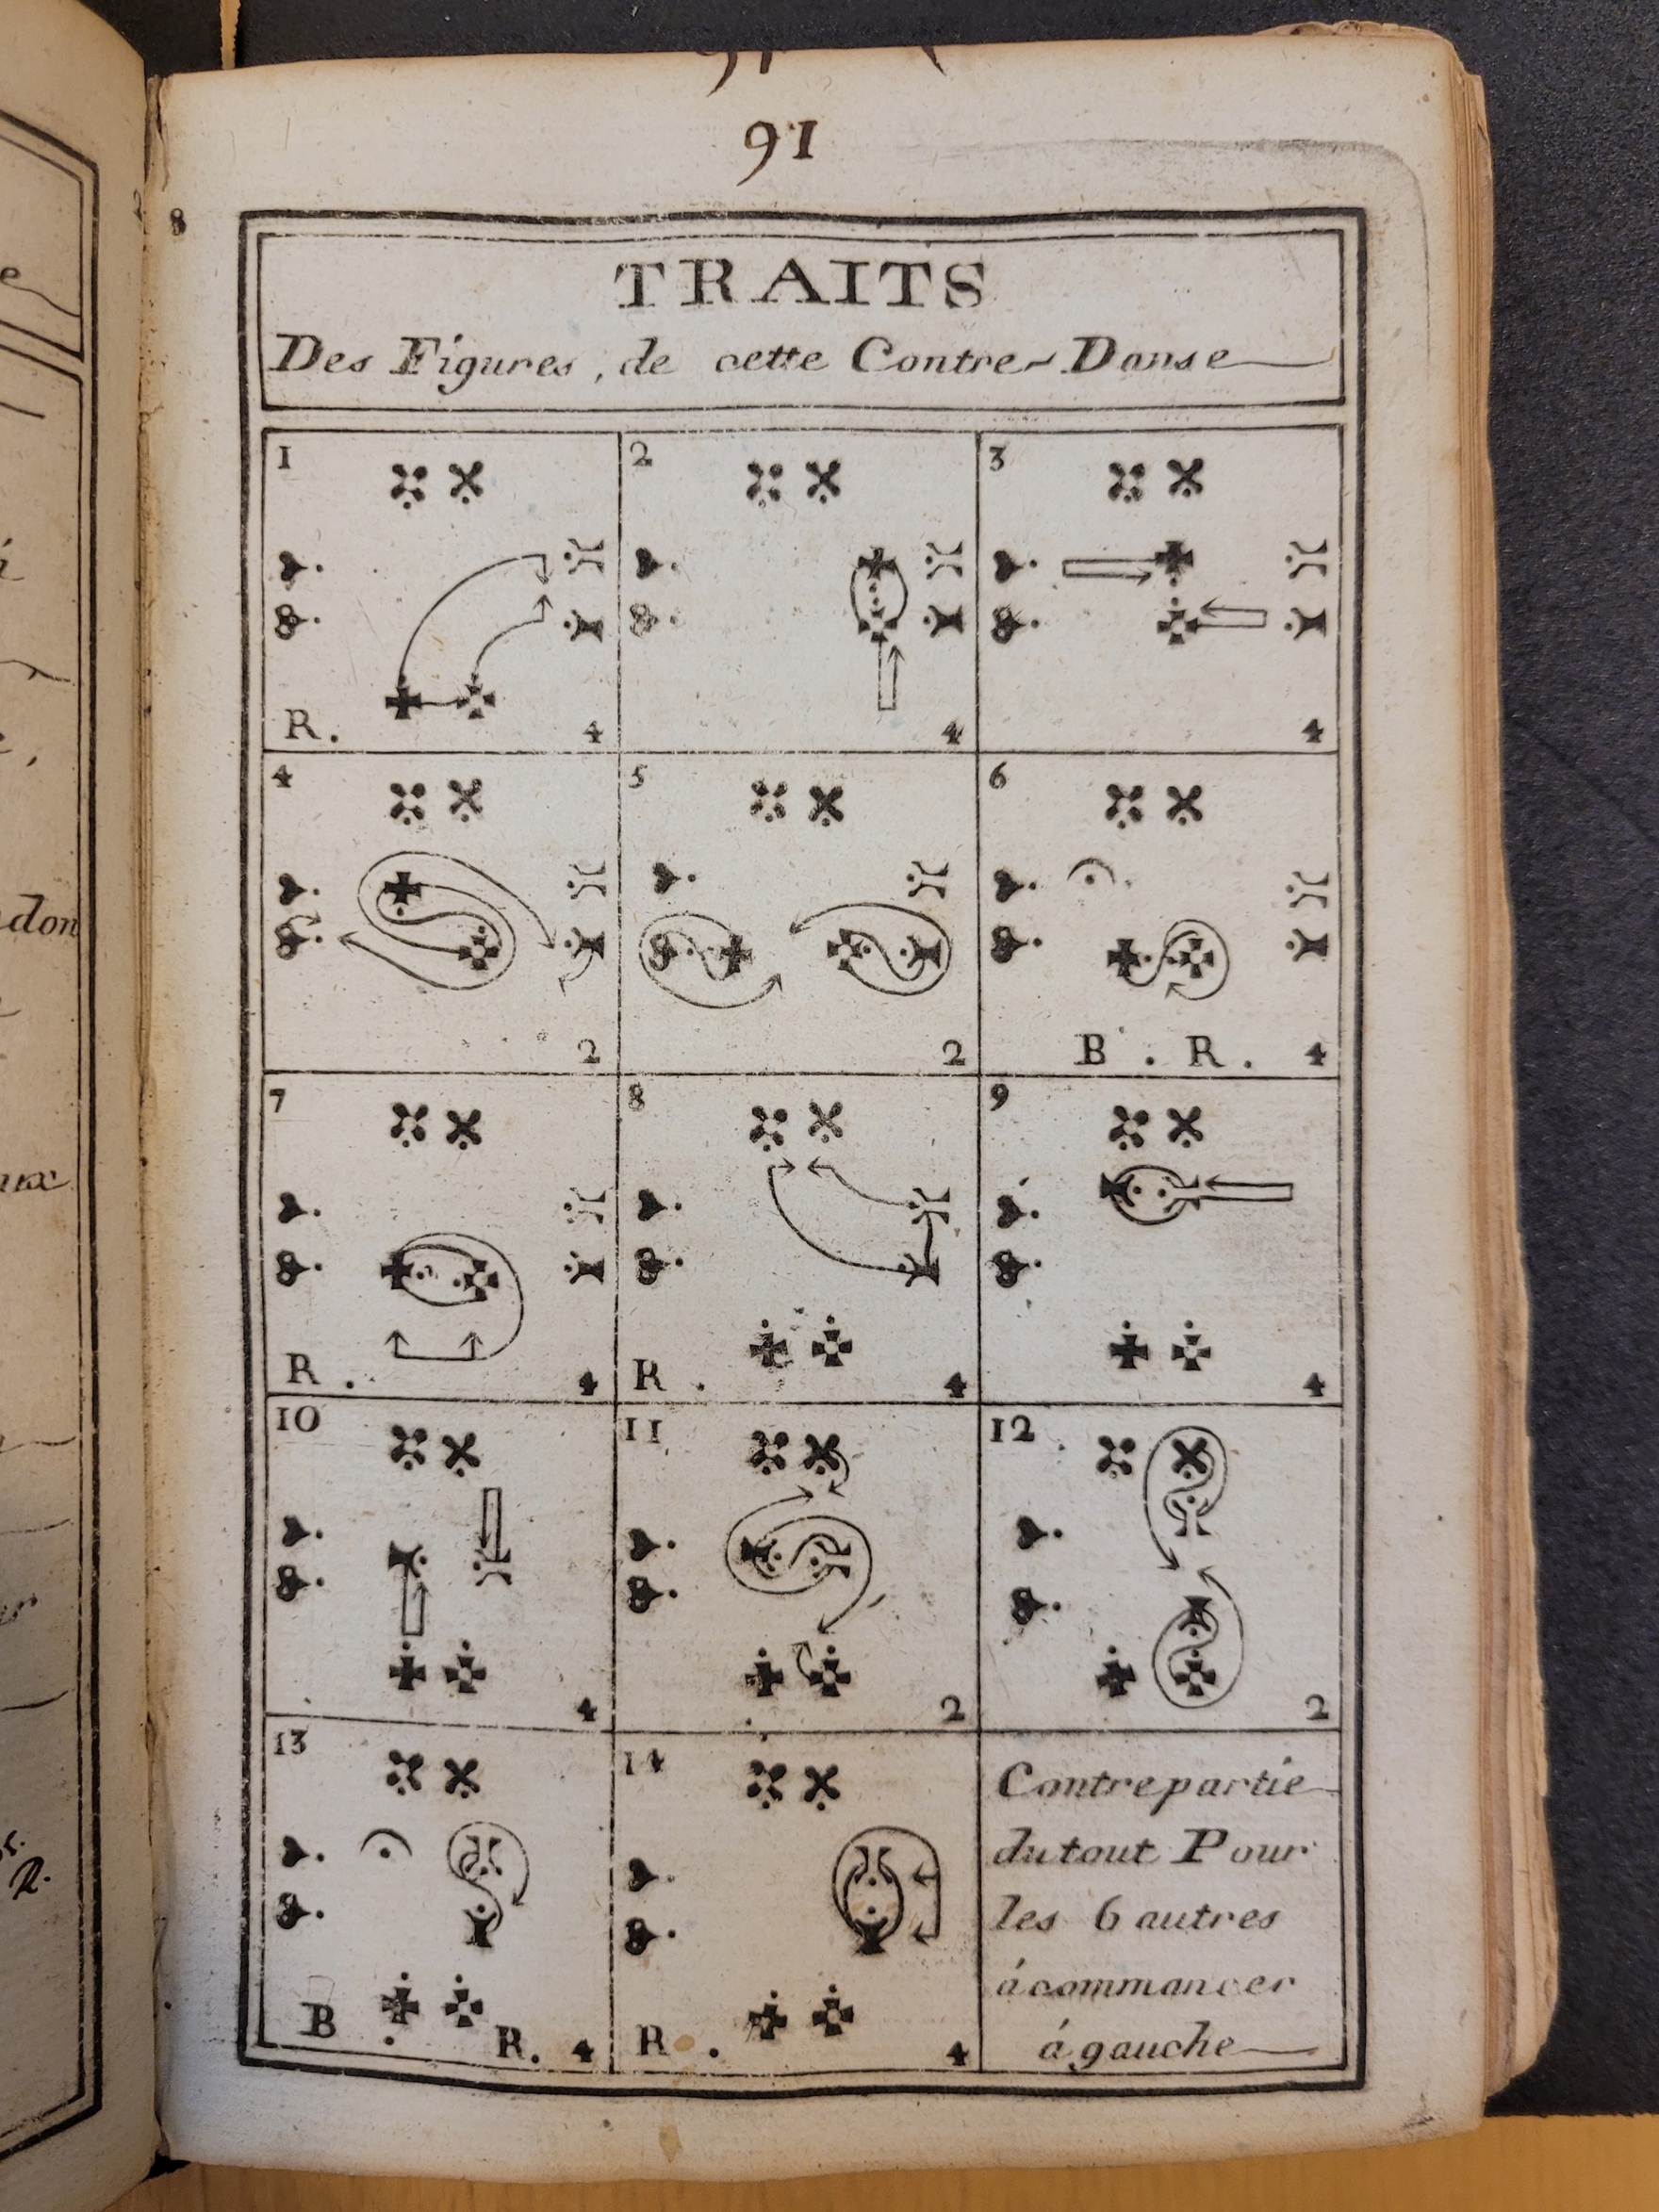 91
8
TRAITS
Des Figures, de cette Contre-Danse
1
R.
4
2
4
3
4
4
2
5
2
6
B. R. 4
7
R.
4
8
R.
4
9
4
10
4
11
2
12.
2
13
B. R. 4
14
R.
4
Contrepartie
du tout Pour
les 6 autres
á commancer
á gauche
don
aux
R.